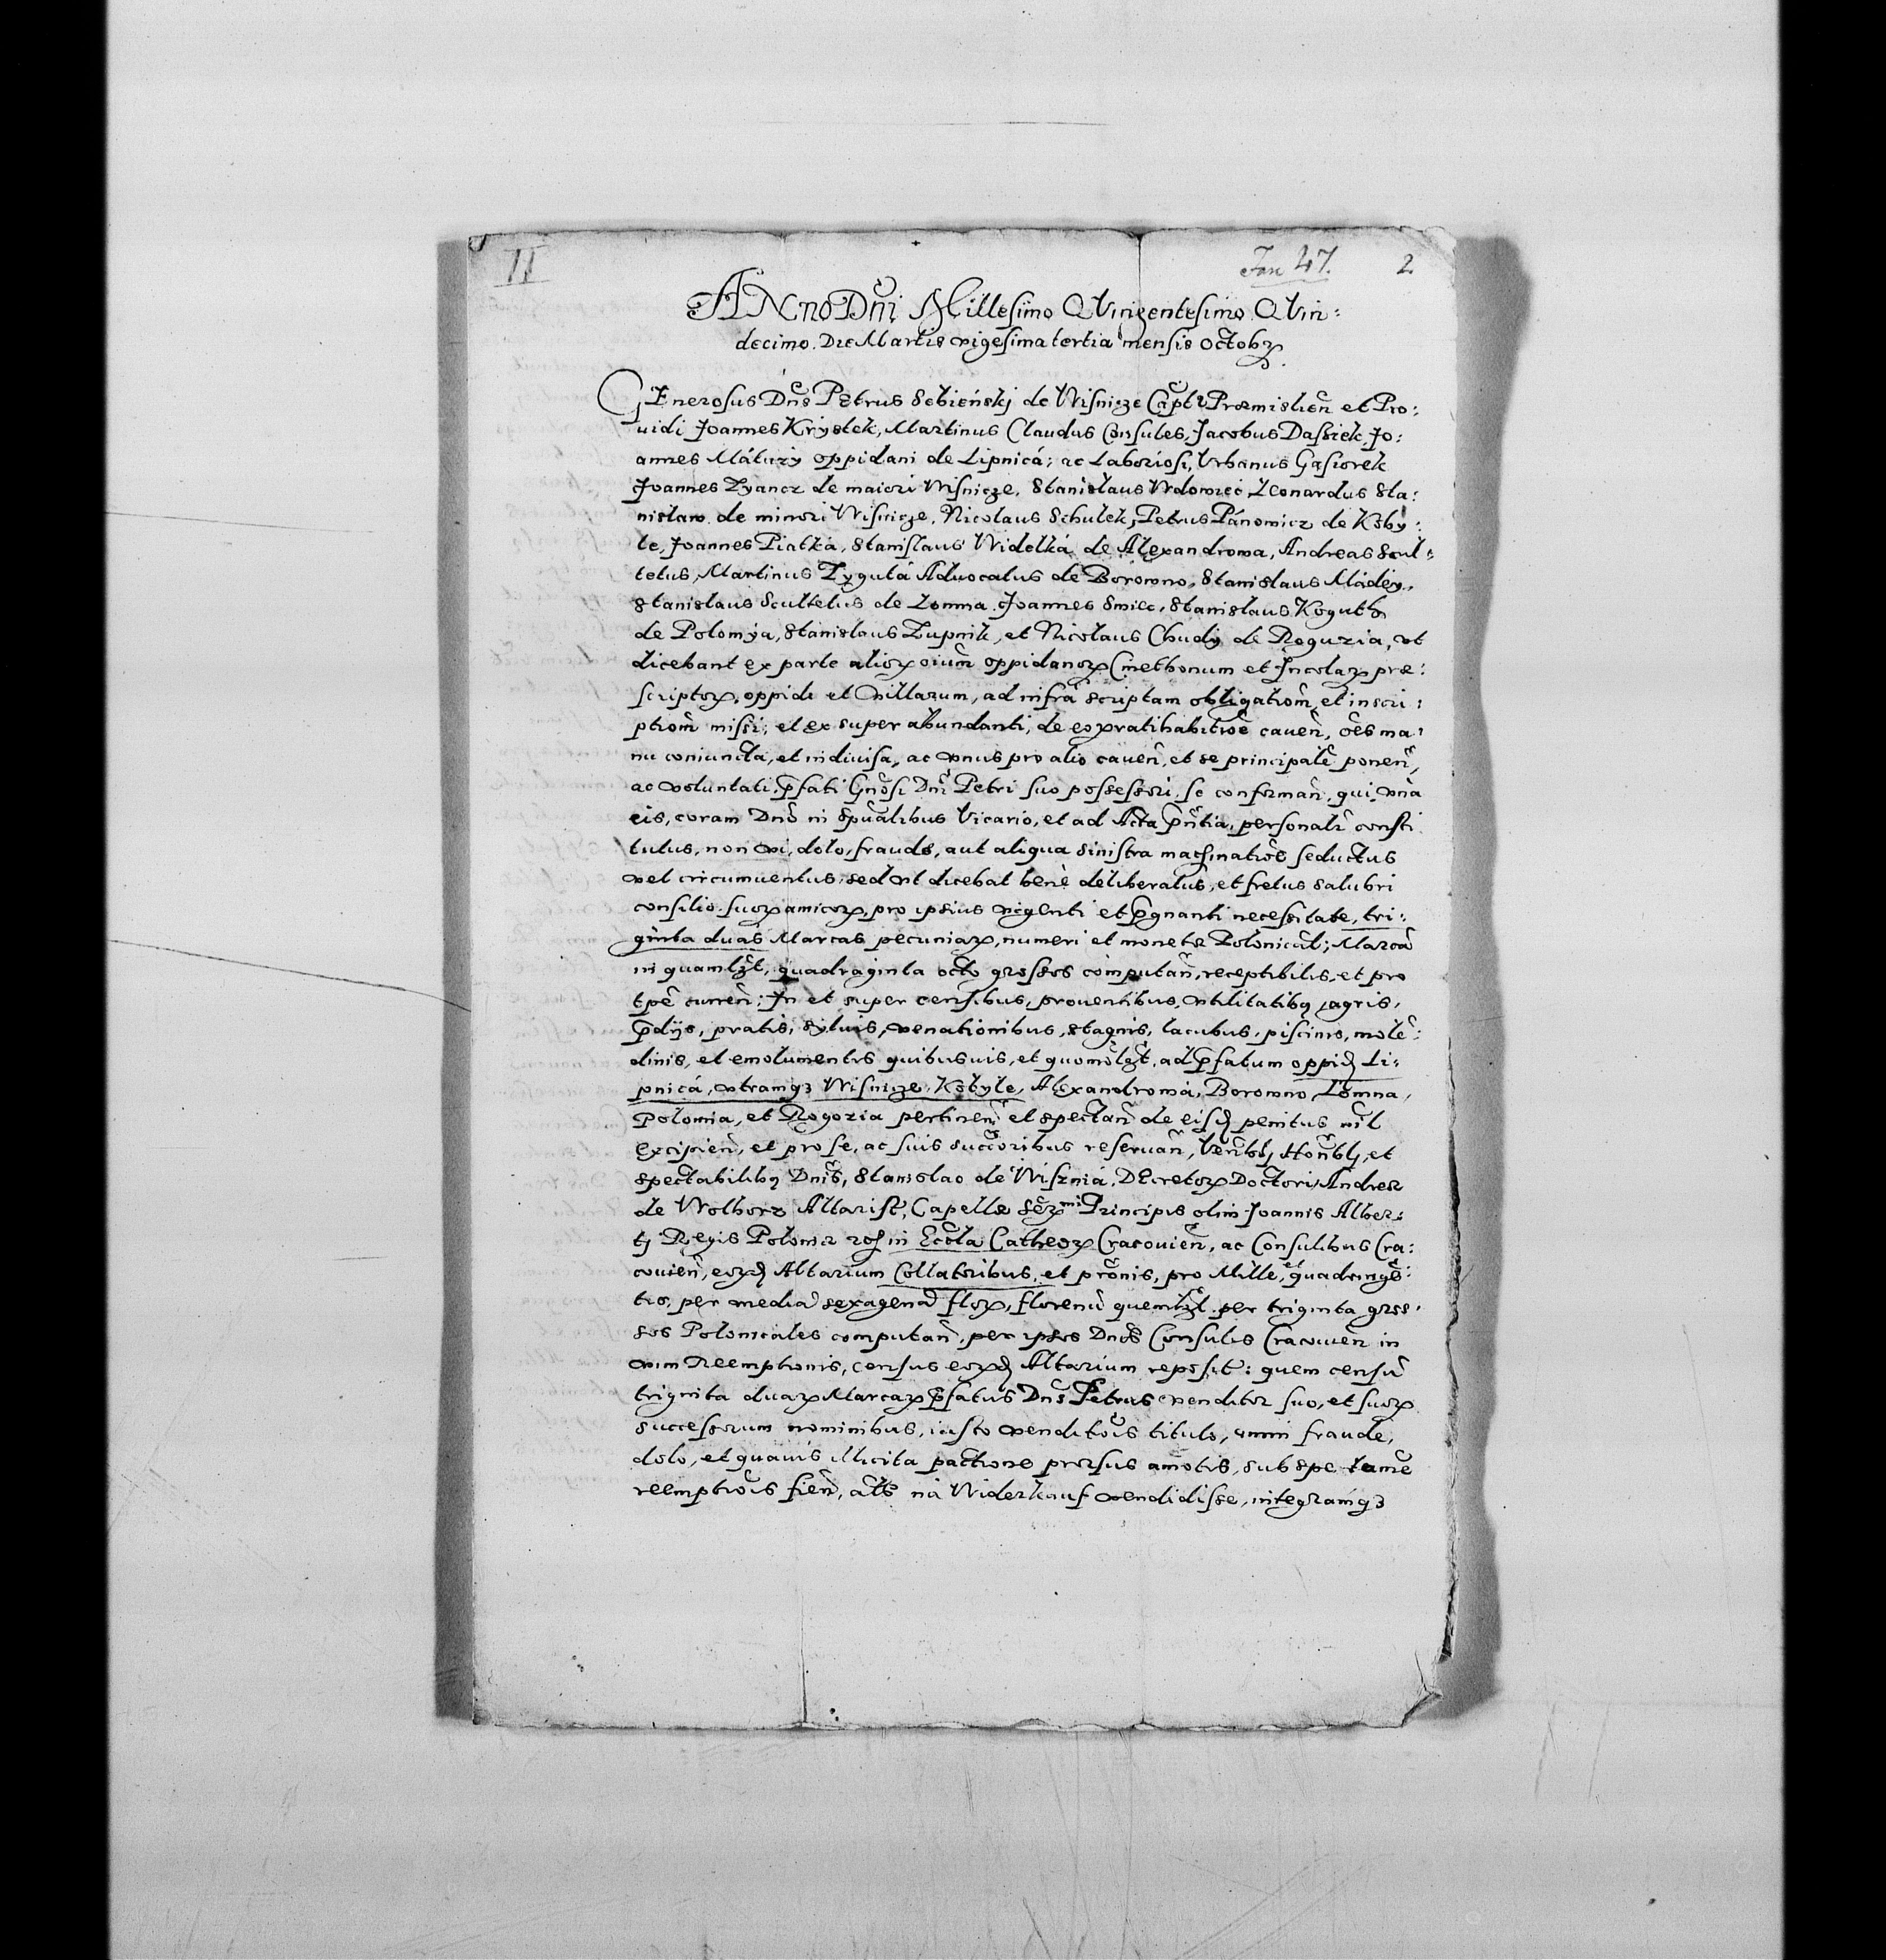 II
Fan 47. 2
ANno Dñi Millesimo QVingentesimo QVin:
decimo. Die Martis vigesima tertia mensis Octobꝝ.
GEnerosus Dñs Petrus Sebieńskj de Wisnicze Capt Præmislień et Pro:
uidi Joannes Krystek, Martinus Claudus Consules, Jacobus Dassiek, Jo:
annes Máturÿ oppidani de Lipnicá; ac Laboriosi, Vrbanus Gąsiorek
Joannes Zyancz de maiori Wisnicze, Stanislaus Wdowiec Leonardus Sta:
nislaw de minori Wisnicze, Nicolaus Schulek, Petrus Pánowicz de Kobÿ:
le, Joannes Piatka, Stanislaus Widelká de Alexandrowa, Andreas Scul:
tetus, Martinus Zygulá Aduocatus de Borowno, Stanislaus Mádey,
Stanislaus Scultetus de Lomna, Joannes Smiec, Stanislaus Koguth
de Polomÿa, Stanislaus Zupnik, et Nicolaus Chudÿ de Roguzia, vt
dicebant ex parte alioꝝ oiũm oppidanoꝝ Cmethonum et Incolaꝝ præ:
scriptoꝝ, oppidi et villarum, ad infrà scriptam obligatioñ, et inscri:
ptioñ missi; et ex super abundanti, de eoꝝ ratihabitiõe caueñ, oẽs ma:
nu coniuncta, et indiuisa, ac vnus pro alio caueñ, et se principalẽ poneñ,
ac voluntati p̃fati Gnõsi Dñi Petri suo possessori, se conformañ, qui vnà
eis, coram Dnõ in Spũalibus Vicario, et ad Acta p̃ñtia, personalr̃ consti
tutus, non vi, dolo, fraude, aut aliqua sinistra machinatiõe seductus
vel circumuentus; sed vt dicebat benè deliberatus, et fretus salubri
consilio suoꝝ amicoꝝ, pro ipsius vrgenti et p̃gnanti necessitate, tri:
ginta duas Marcas pecuniaꝝ, numeri et monetæ Polonicãl; Marcã
in quamlꝫt, quadraginta octo grossos computañ, receptibilis, et pro
tpẽ curreñ; In et super censibus, prouentibus, vtilitatibꝫ, agris,
p̃dijs, pratis, syluis, venationibus, stagnis, lacubus, piscinis, molẽ:
dinis, et emolumentis quibusuis, et quomõlꝫt, ad p̃fatum oppid Li:
pnicá, vtramqꝫ Wisnicze, Kobyle, Alexandrowá, Borowno, Lomna,
Polomia, et Rogozia pertineñ et spectañ de eisd penitus nil
excipieñ, et pro se, ac suis succẽoribus reseruañ, Veñblꝫ, Hoñblꝫ, et
spectabilibꝫ Dnis, Stanislao de Wisznia, DEcretoꝝ Doctori, Andreæ
de Wolborz Altarist, Capellæ Serꝫmi Principis olim Joannis Alber:
tj Regis Poloniæ in Eccla Cathedꝝ Cracouieñ, ac Consulibus Cra:
couieñ, eoꝝd Altarium Collatoribus, et prõnis, pro Mille, et quadringẽ:
tis, per media sexagena floꝝ, florenũ quemlꝫt per triginta gros:
sos Polonicales computañ, per ipsos Dnõs Consules Cracouieñ in
vim Reemptionis, census eoꝝd Altarium reposit: quem censũ
triginta duaꝝ Marcaꝝ p̃fatus Dñs Petrus venditor suo, et suoꝝ
successorum nominibus, iusto venditiõis titulo, omni fraude,
dolo, et quauis illicita pactione prorsus amotis, sub spe tamẽ
reemptiõis fieñ, als̃ ná Widerkauf vendidisse, integramqꝫ